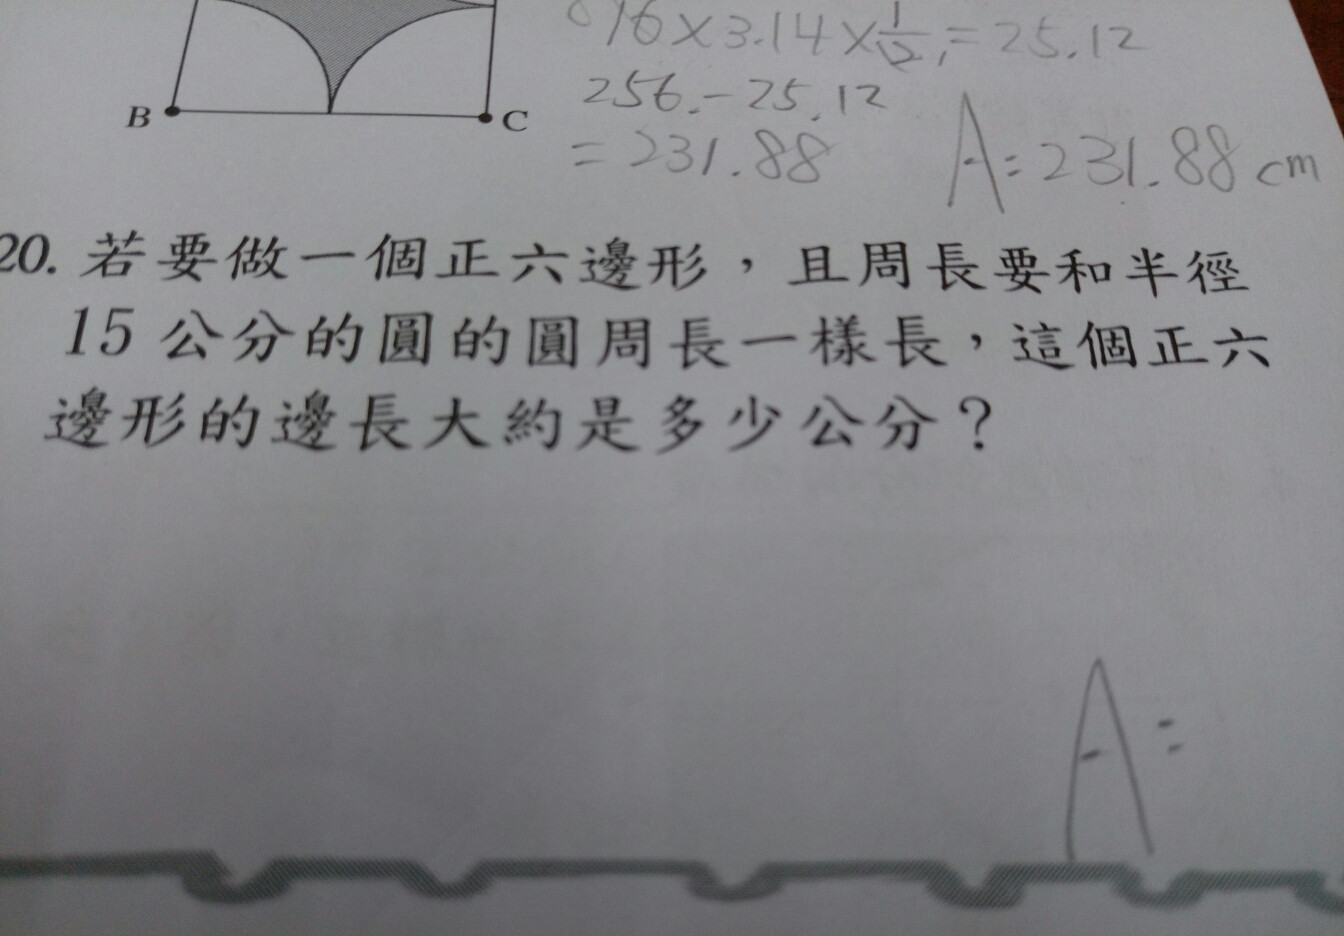 16×3.14×1/12=25.12
256.-25.12
=231.88
A=231.88 cm
B
C
20. 若要做一個正六邊形，且周長要和半徑
15公分的圓的圓周長一樣長，這個正六
邊形的邊長大約是多少公分？
A=